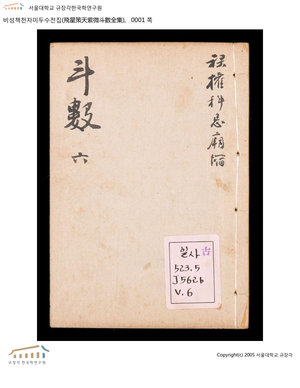 서울대학교 규장각한국학연구원
비성책천자미두수전집(飛星策天紫微斗數全集), 0001 쪽
斗數
六
祿權科忌廟陷
일사 古
523.5
J562b
V.6
규장각한국학연구원
Copyright(c) 2005 서울대학교 규장각